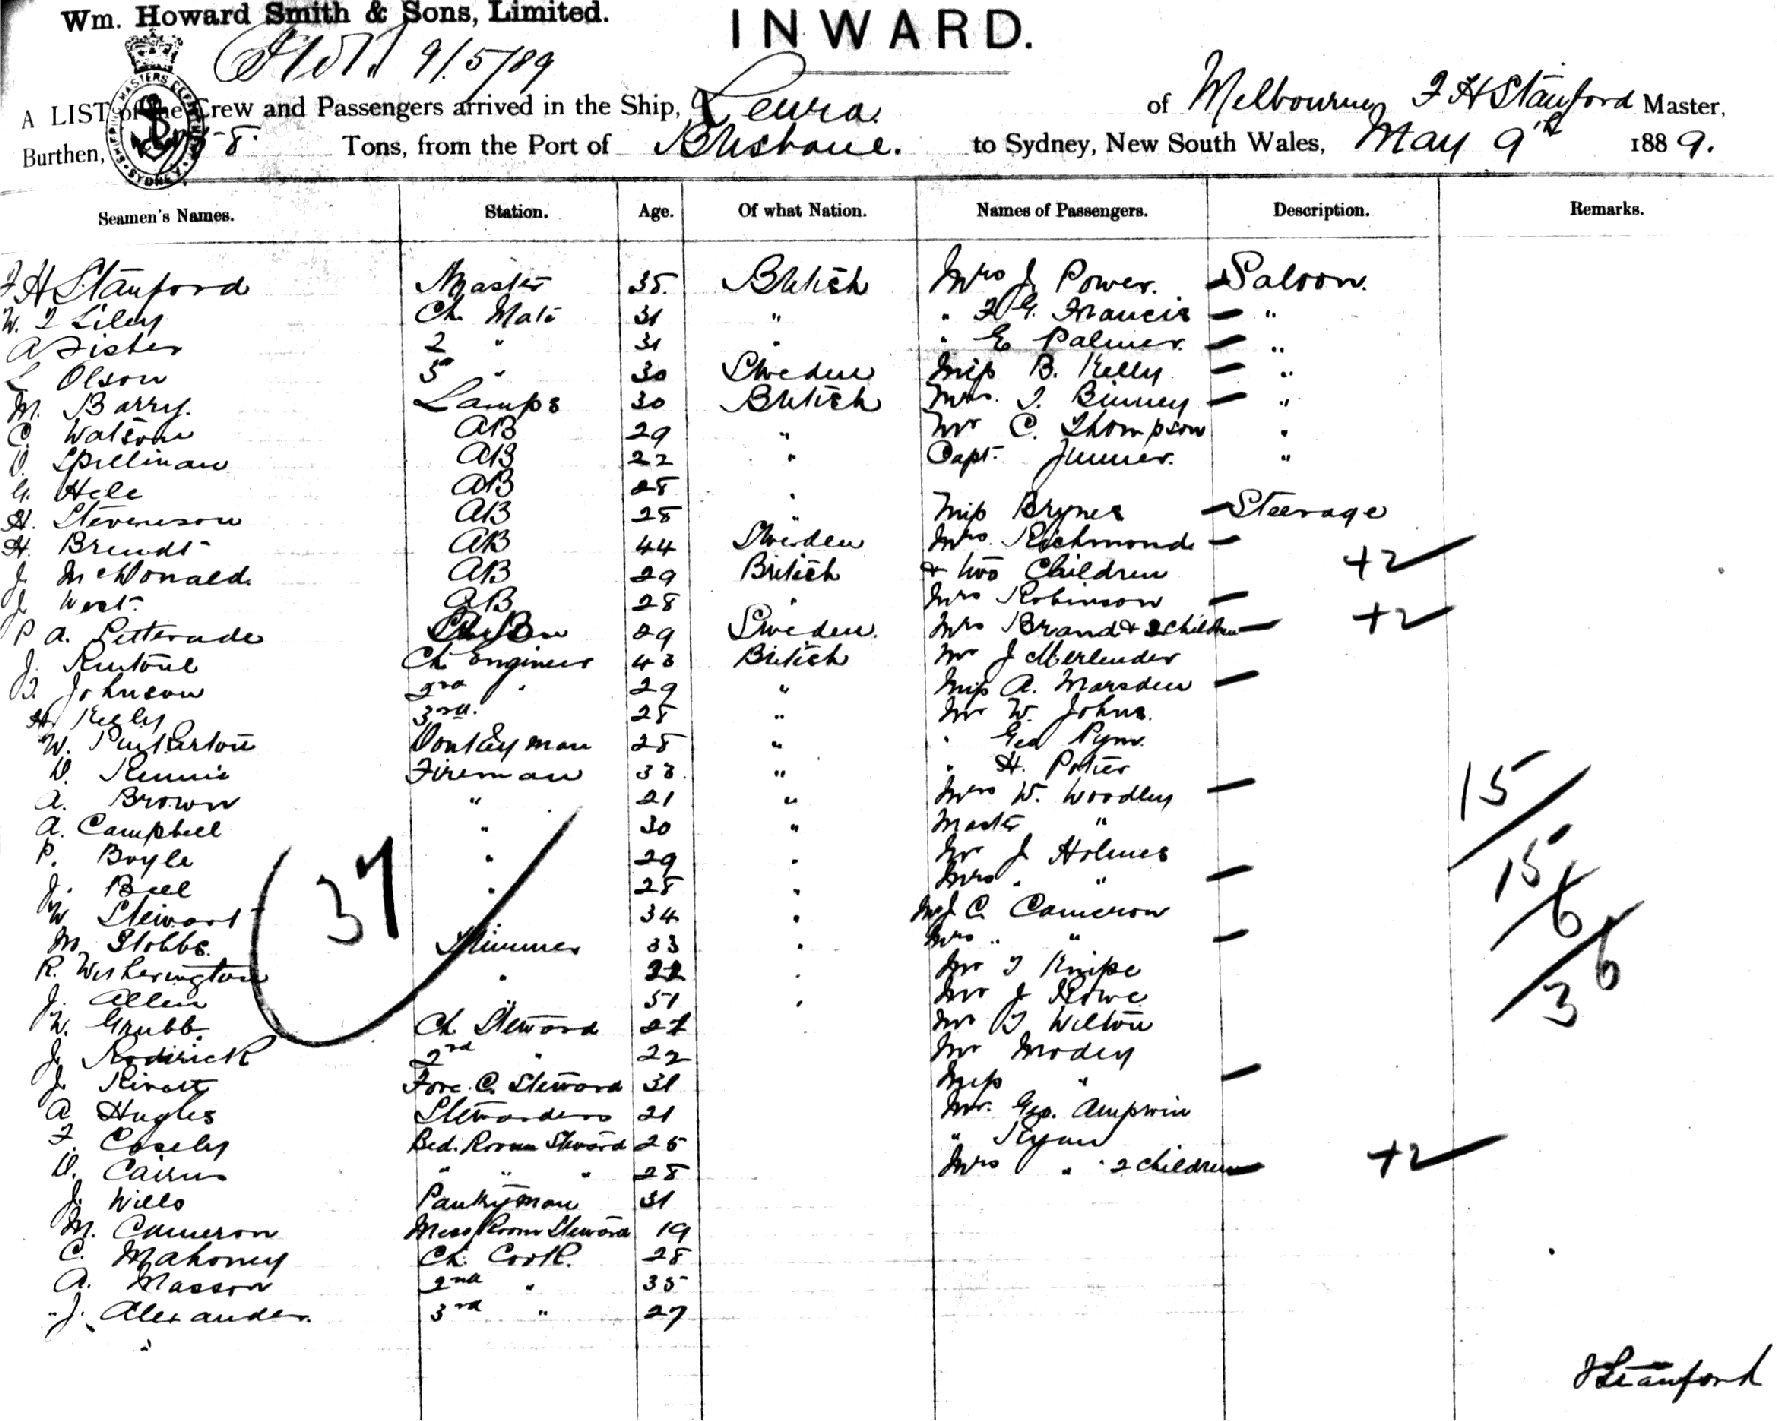 Wm. Howard Smith & Sons, Limited.
INWARD.
9/5/89
A LIST of the Crew and Passengers arrived in the Ship, Leura of Melbourne F H Stanford Master,
Burthen, Tons, from the Port of Brisbane. to Sydney, New South Wales, May 9th 1889.
SHIPPING MASTERS DEPARTMENT SYDNEY
Seamen's Names. Station. Age. Of what Nation. Names of Passengers. Description. Remarks.
F H Stanford Master 35 British Mrs J Power. Saloon.
W. F Liley Ch Mate 31 " " F G. Francis "
A Fisher 2 " 31 " " E Palmer "
L Olson 3 " 30 Sweden Miss B. Kelly "
M. Barry. Lamps 30 British Mrs. T. Binney "
C. Watson AB 29 " Mr C. Thompson "
D. Spillman AB 22 " Capt. Jenner. "
G. Hele AB 28 "
H. Stevenson AB 28 " Miss Brynes Steerage
H. Brendt AB 44 Sweden Mrs Richmond
J. McDonald. AB 29 British & two Children +2
J. West AB 28 " Mrs Robinson
P A. 29 Sweden. Mrs Brand & 2 children +2
J. Ch Engineer 43 British Mr J
T. Johnson 2nd " 29 " Miss A. Marsden
H. Kelly 3rd. 28 " Mr W. Johns
W. Pinkerton Donkeyman 28 " " Geo Pym
D. Rennie Fireman 33 " " H. Potter
A. Brown " 21 " Mrs W. Woodley
A. Campbell " 30 " Master "
P. Boyle " 29 " Mr J Holmes
J. Bell " 28 " Mrs " "
W Stewart " 34 " C. Cameron
M. Stobbs. Trimmer 33 " Mrs " "
R. Witherington " 22 " Mr T Knipe
J. Allen " 51 " Mr J Rowe
W. Grubb Ch Steward Mr T Wilton
J. Roderick 2nd " 22 Mr Modey
J. Fore C. Steward 31 Miss "
A Hughes Stewardess 21 Mr. Geo.
F. Cosely Bed. Room Steward 25 " Ryan
D. Cairns " " " 28 Mrs " 2 children +2
J. Wills Pantryman 31
M. Cameron Mess Room Steward 19
C. Mahoney Ch. Cook. 28
A. Masson 2nd " 35
J. Alexander. 3rd " 27
37
15
15
6
6
3
F H Stanford